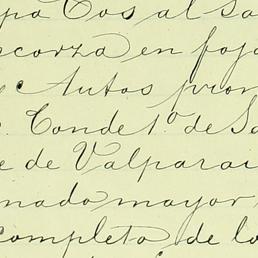 pa Cos al Sa
scorza en foja
e Autos pron
. Conde 1.º de Sa
e de Valparai
nado mayor
completo de lo